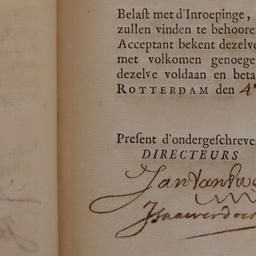 Belaſt met d'Inroepinge,
zullen vinden te behoore
Acceptant bekent dezelve
met volkomen genoege
dezelve voldaan en beta
ROTTERDAM den 4
Preſent d'ondergeſchreve
DIRECTEURS
Jan van